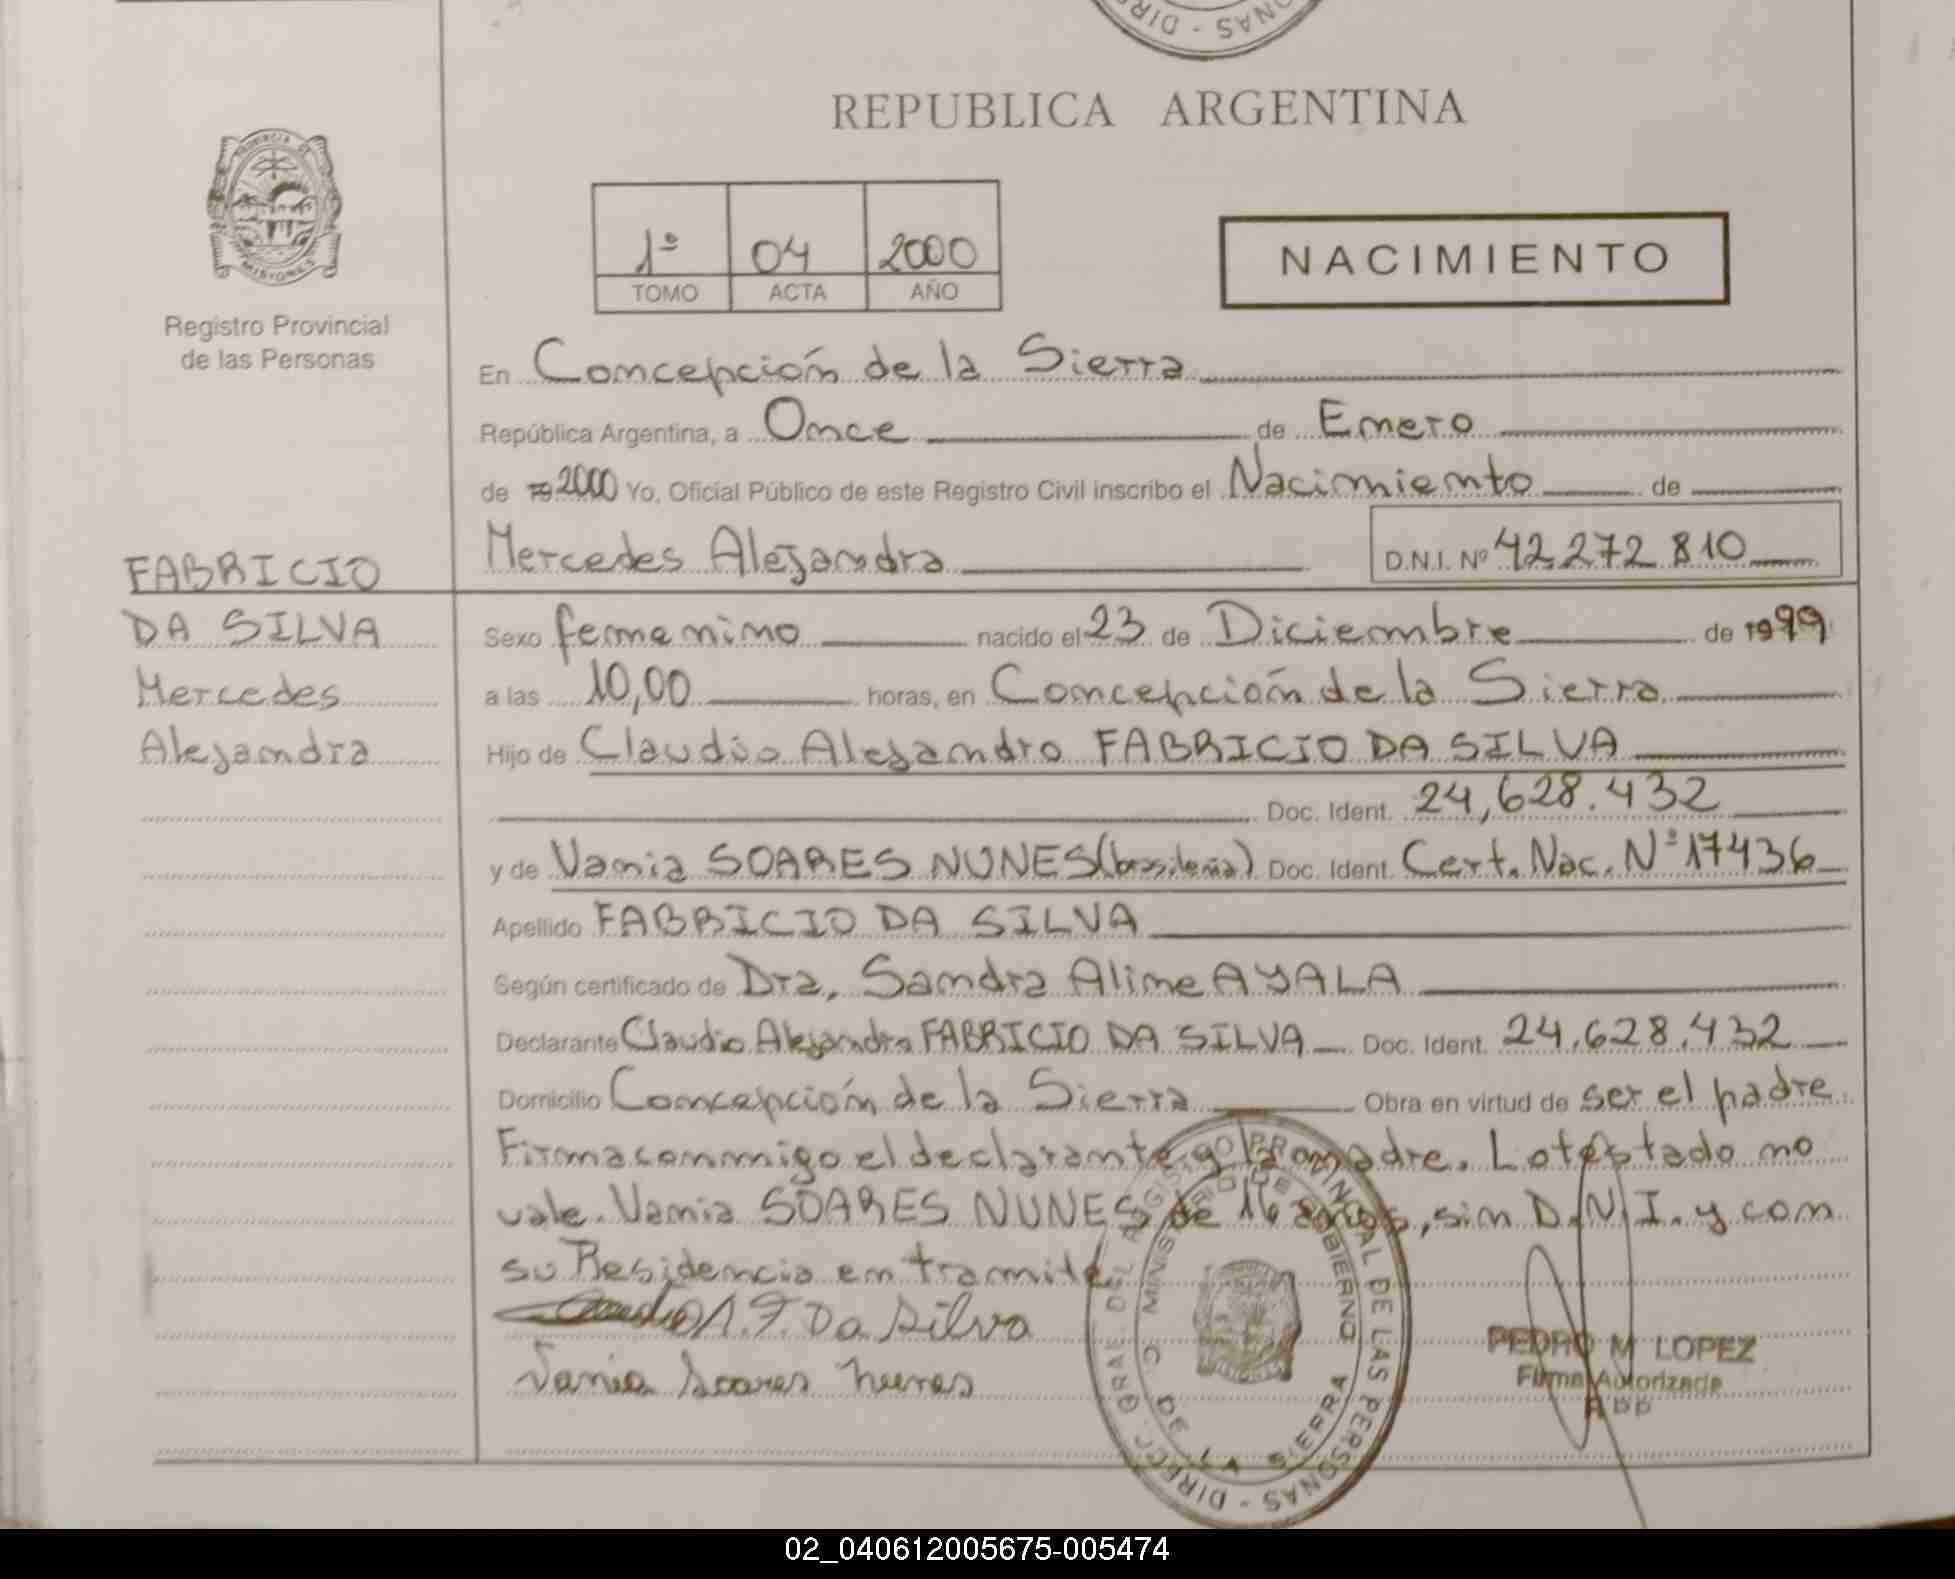 DIRE - SONAS
REPUBLICA ARGENTINA
PROVINCIA DE
MISIONES
Registro Provincial
de las Personas
1º 04 2000
TOMO ACTA AÑO
NACIMIENTO
En Concepción de la Sierra
República Argentina, a Once de Enero
de 19 2000 Yo, Oficial Público de este Registro Civil inscribo el Nacimiento de
Mercedes Alejandra D.N.I. Nº 42.272.810
FABRICIO
DA SILVA
Mercedes
Alejandra
Sexo femenino nacido el 23 de Diciembre de 1999
a las 10,00 horas, en Concepción de la Sierra
Hijo de Claudio Alejandro FABRICIO DA SILVA
Doc. Ident. 24,628.432
y de Vania SOARES NUNES (brasileña) Doc. Ident. Cert. Nac. Nº 17436
Apellido FABRICIO DA SILVA
Según certificado de Dra, Sandra Aline AYALA
Declarante Claudio Alejandro FABRICIO DA SILVA Doc. Ident. 24.628.432
Domicilio Concepción de la Sierra Obra en virtud de ser el padre
Firma conmigo el declarante y la madre. Lo testado no
vale. Vania SOARES NUNES de 16 años, sin D.N.I. y con
su Residencia en tramite
Claudio A. F. Da Silva
Vania Soares Nunes
DIRECC. GRAL. DEL REGISTRO PROVINCIAL DE LAS PERSONAS
MINISTERIO DE GOBIERNO
C. DE LA SIERRA
PEDRO M LOPEZ
Firma Autorizada
02_040612005675-005474